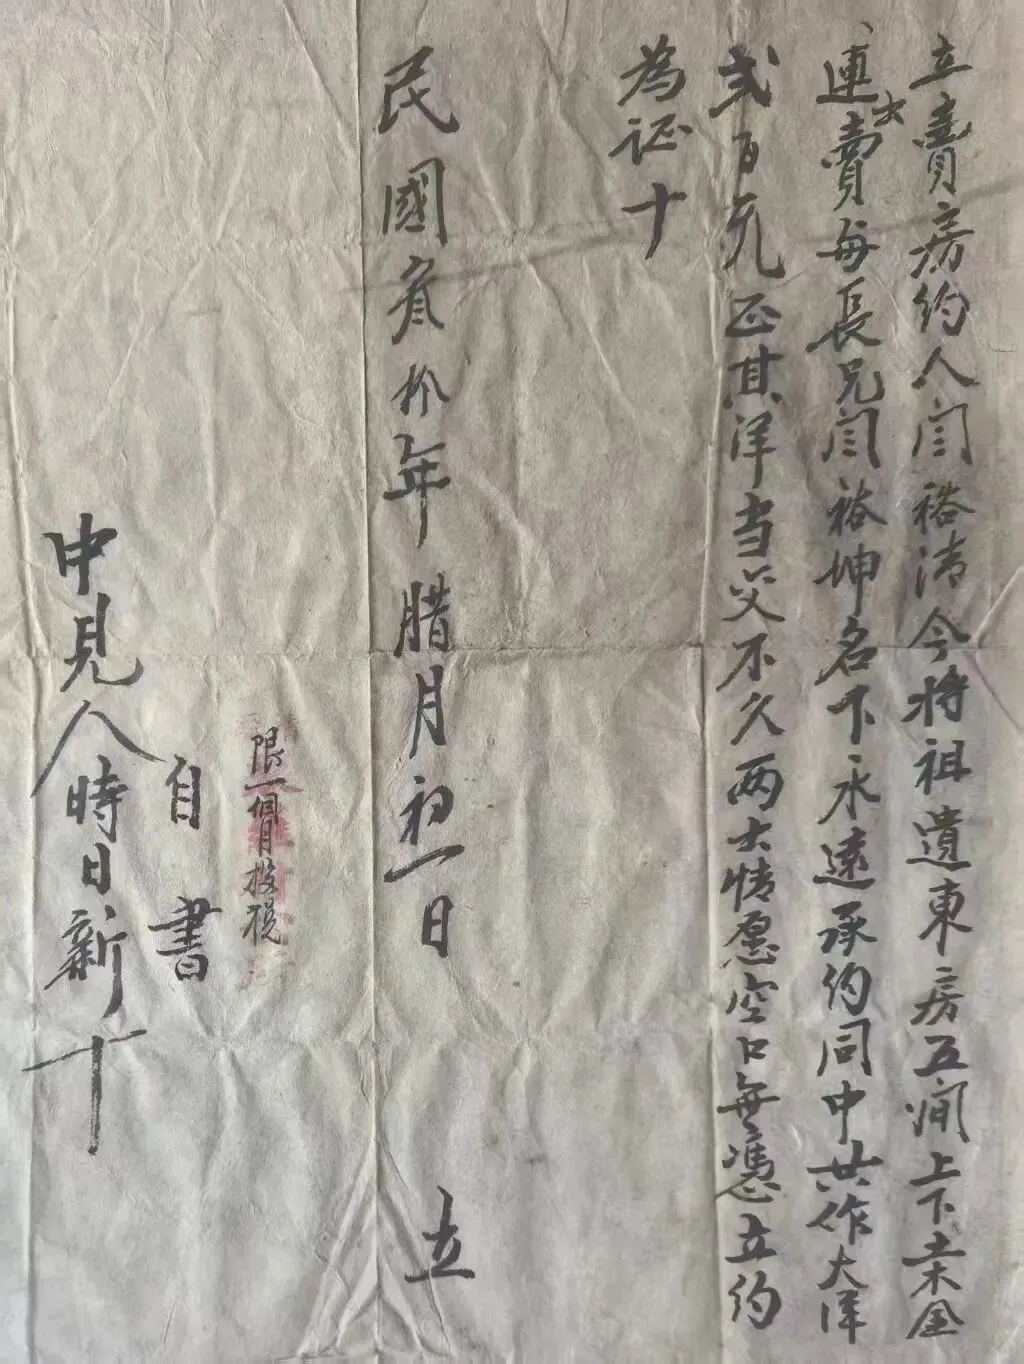 立賣房約人闫裕清今将祖遺東房五间上下土木金
連出賣与長兄闫裕坤名下永遠承約同中共作大洋
弍百元正其洋当交不欠两出情愿空口無憑立约
為证十
民國叁拾年腊月初一日 立
限一個月投税
自書
中見人時日新十